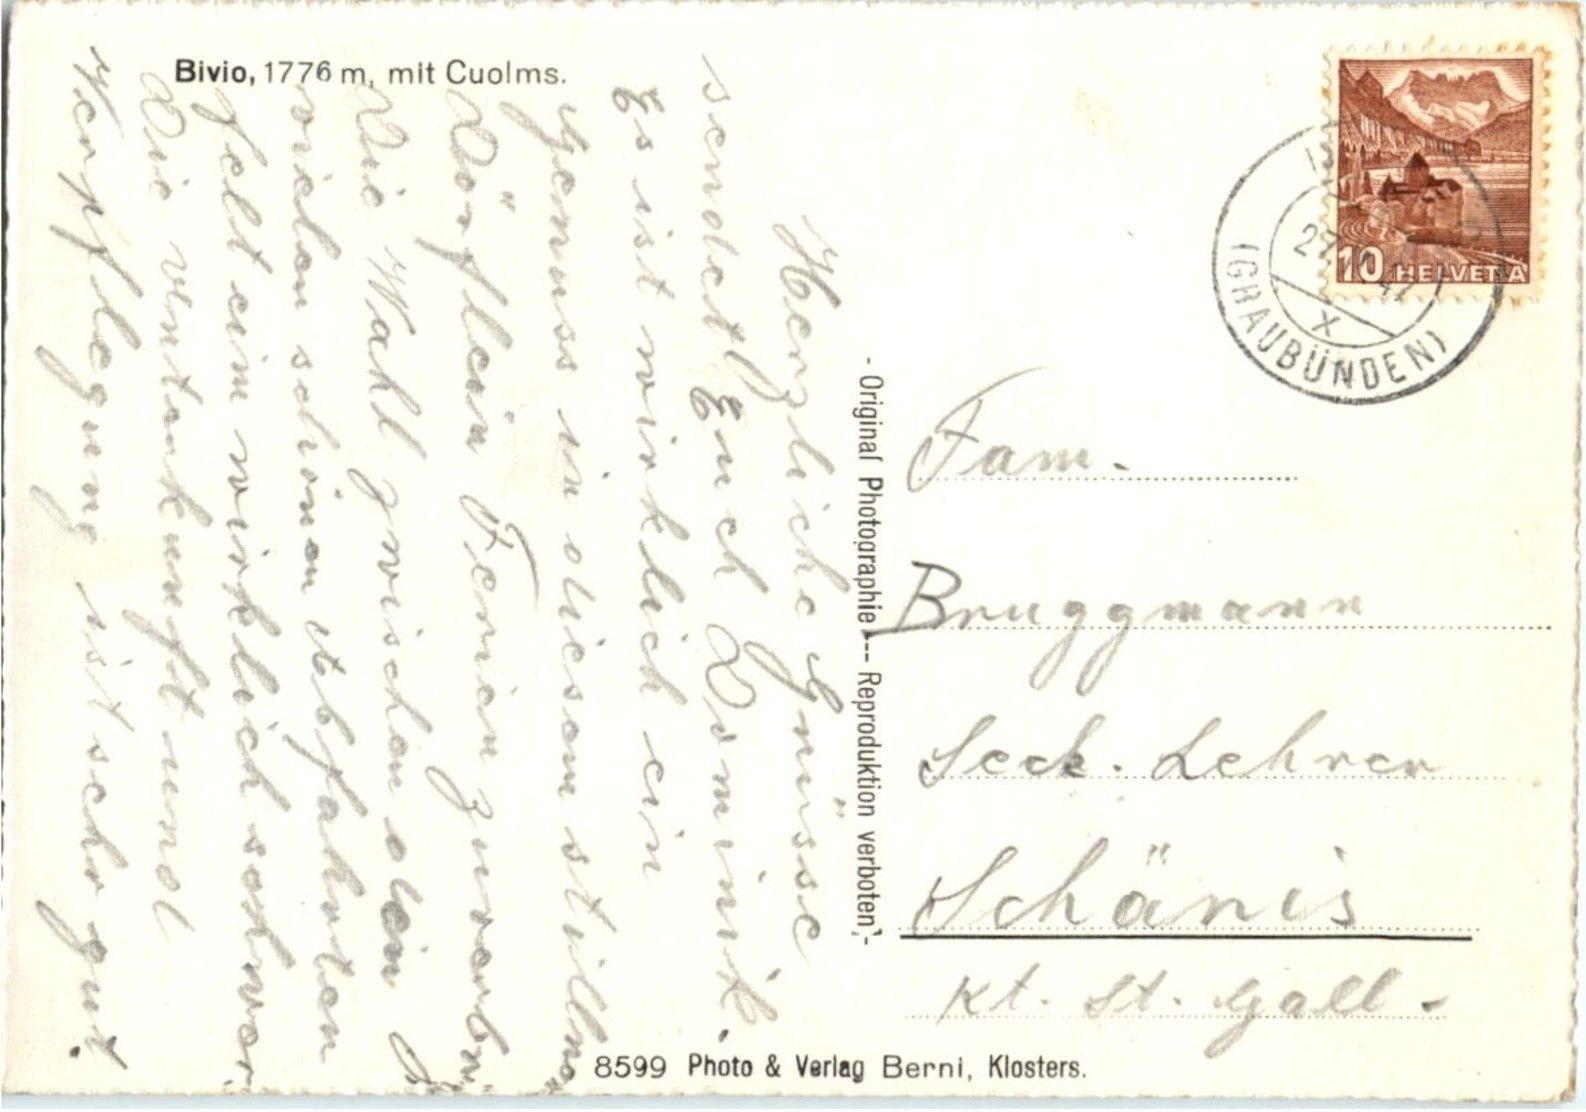 Bivio, 1776 m, mit Cuolms.
Herzliche Grüsse
sendet Euch Dominik.
Es ist wirklich ein
Genuss in diesem stillen
Dörflein Ferien zu verbr.
Die Wahl zwischen den
vielen schönen Abfahrten
felt eim wirklich schwer
Die Untenkunft und
Verpflegung ist sehr gut.
- Original Photographie --- Reproduktion verboten. -
10 HELVETIA
27
47
X
(GRAUBÜNDEN)
Fam.
Bruggmann
Seck. Lehrer
Schänis
Kt. St. Gall.
8599 Photo & Verlag Berni, Klosters.